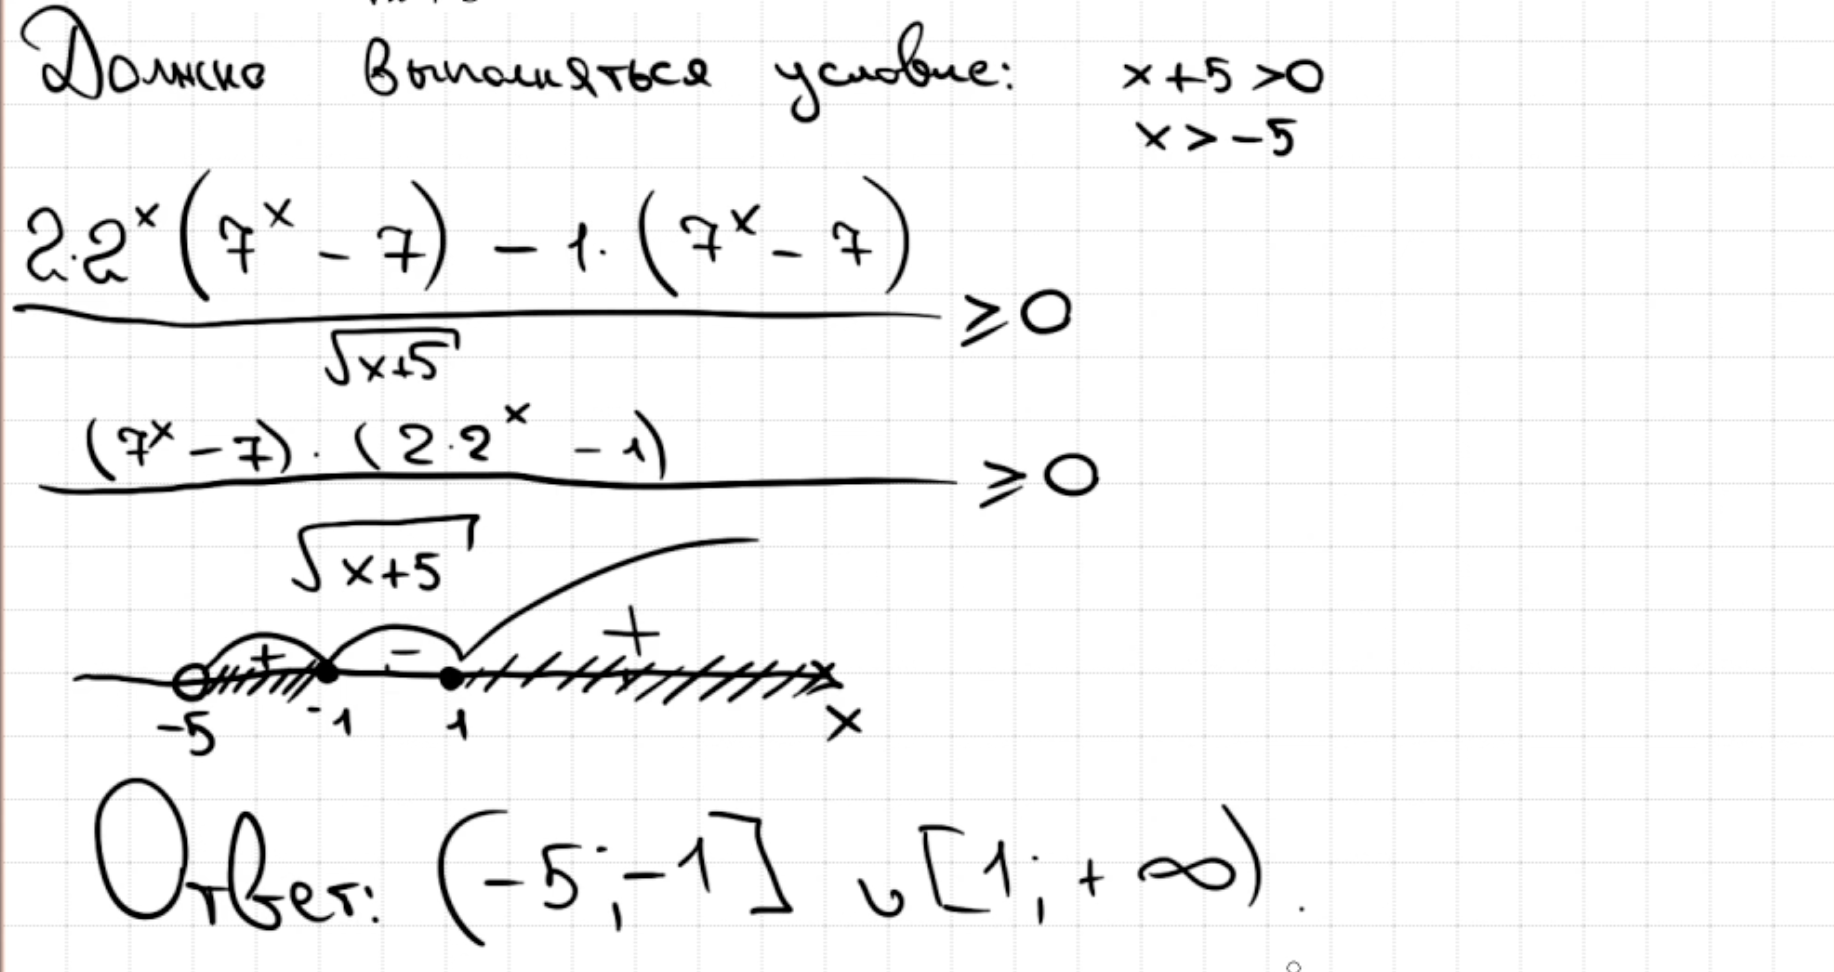 Должно выполняться условие: x+5>0
x>-5
2·2ˣ(7ˣ - 7) - 1·(7ˣ - 7)
≥0
√x+5
(7ˣ - 7)·(2·2ˣ - 1)
≥0
√x+5
+ - +
-5 -1 1 x
Ответ: (-5;-1] ∪ [1;+∞).